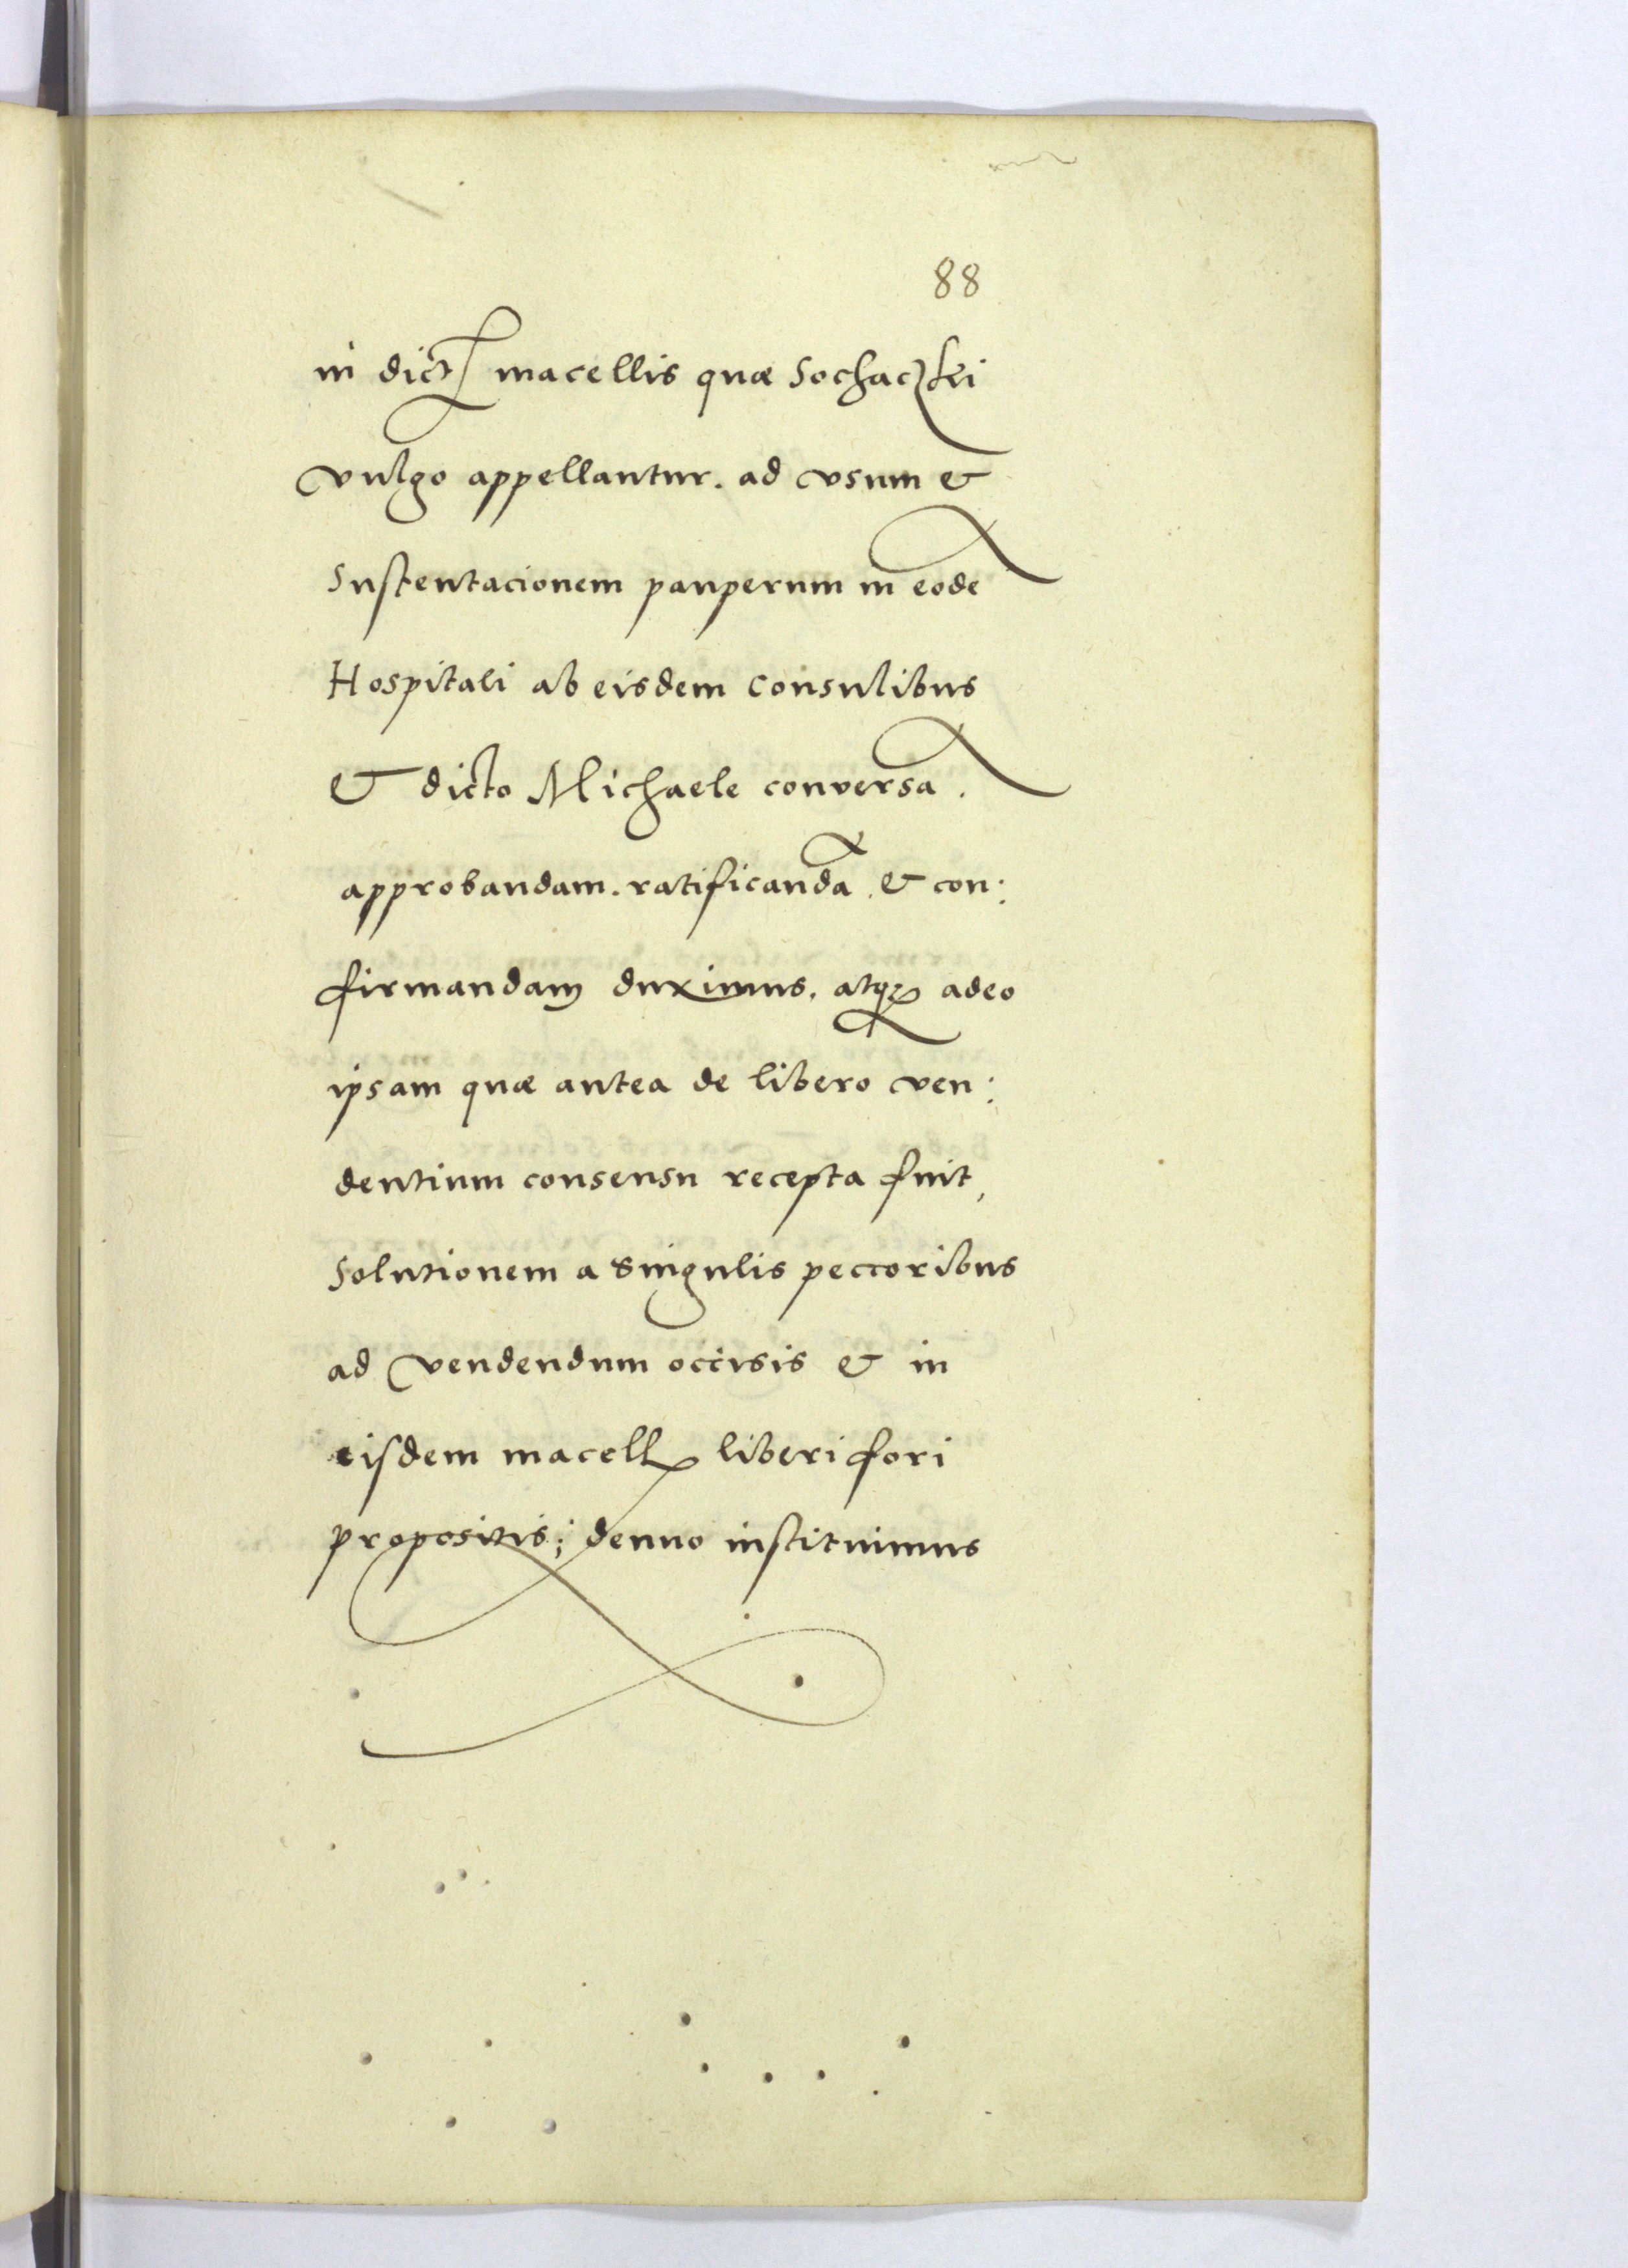 88
in dictꝭ macellis quæ Sochaczki
vulgo appellantur. ad vsum &
Sustentacionem pauperum in eodē
Hospitali ab eisdem Consulibus
& dicto Michaele conversā.
approbandam. ratificandā & con:
firmandam duximus. atqꝫ adeo
ipsam quæ antea de libero ven:
dentium consensu recepta fuit,
Solutionem a singulis peccoribus
ad vendendum occisis & in
eisdem macellꝭ liberi fori
propositis; denuo instituimus